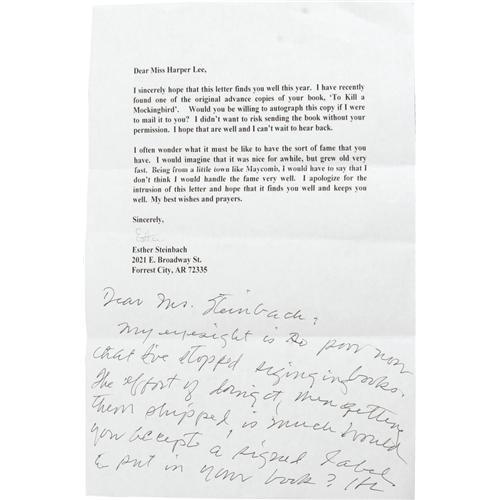 Dear Miss Harper Lee,
I sincerely hope that this letter finds you well this year. I have recently
found one of the original advance copies of your book, 'To Kill a
Mockingbird'. Would you be willing to autograph this copy if I were
to mail it to you? I didn't want to risk sending the book without your
permission. I hope that are well and I can't wait to hear back.
I often wonder what it must be like to have the sort of fame that you
have. I would imagine that it was nice for awhile, but grew old very
fast. Being from a little town like Maycomb, I would have to say that I
don't think I would handle the fame very well. I apologize for the
intrusion of this letter and hope that it finds you well and keeps you
well. My best wishes and prayers.
Sincerely,
Esther Steinbach
2021 E. Broadway St.
Forrest City, AR 72335
Dear Ms. Steinbach:
My eyesight is so poor now
that I've stopped signing books.
The effort of doing it, then getting
them shipped is much. Would
you accept a signed label
to put in your book? HL